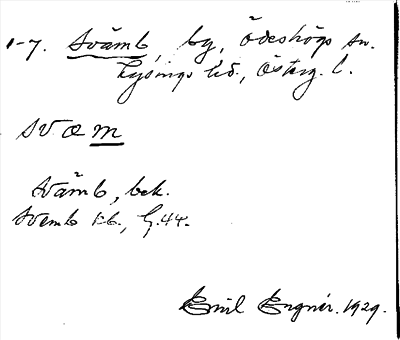 1-7. Svämb, by, Ödeshögs sn.
Lysings hd., Österg. l.
svæm
Svämb, bek.
Svemb Eb., G.44.
Emil Engnér. 1929.